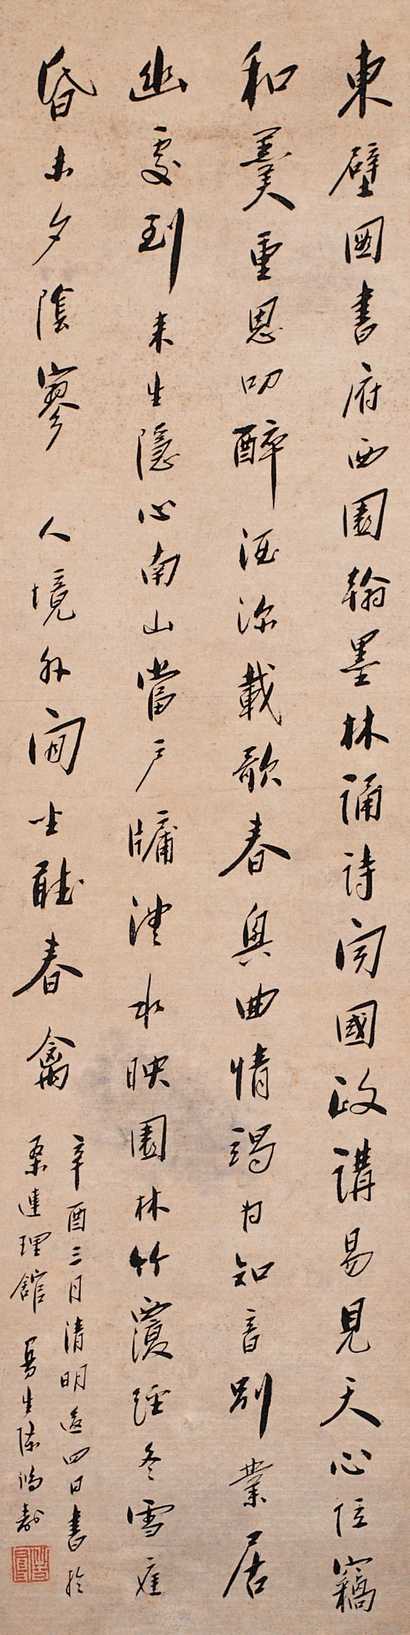 東壁圖書府西園翰墨林誦詩聞國政講易見天心位竊
和羹重恩叨醉酒深載歌春興曲情竭为知音別業居
幽處到来生隱心南山當户牖灃水映園林竹覆經冬雪庭
昏未夕陰寥人境外闲坐聽春禽
辛酉三月清明後四日書於
桑連理館曼生陳鴻壽